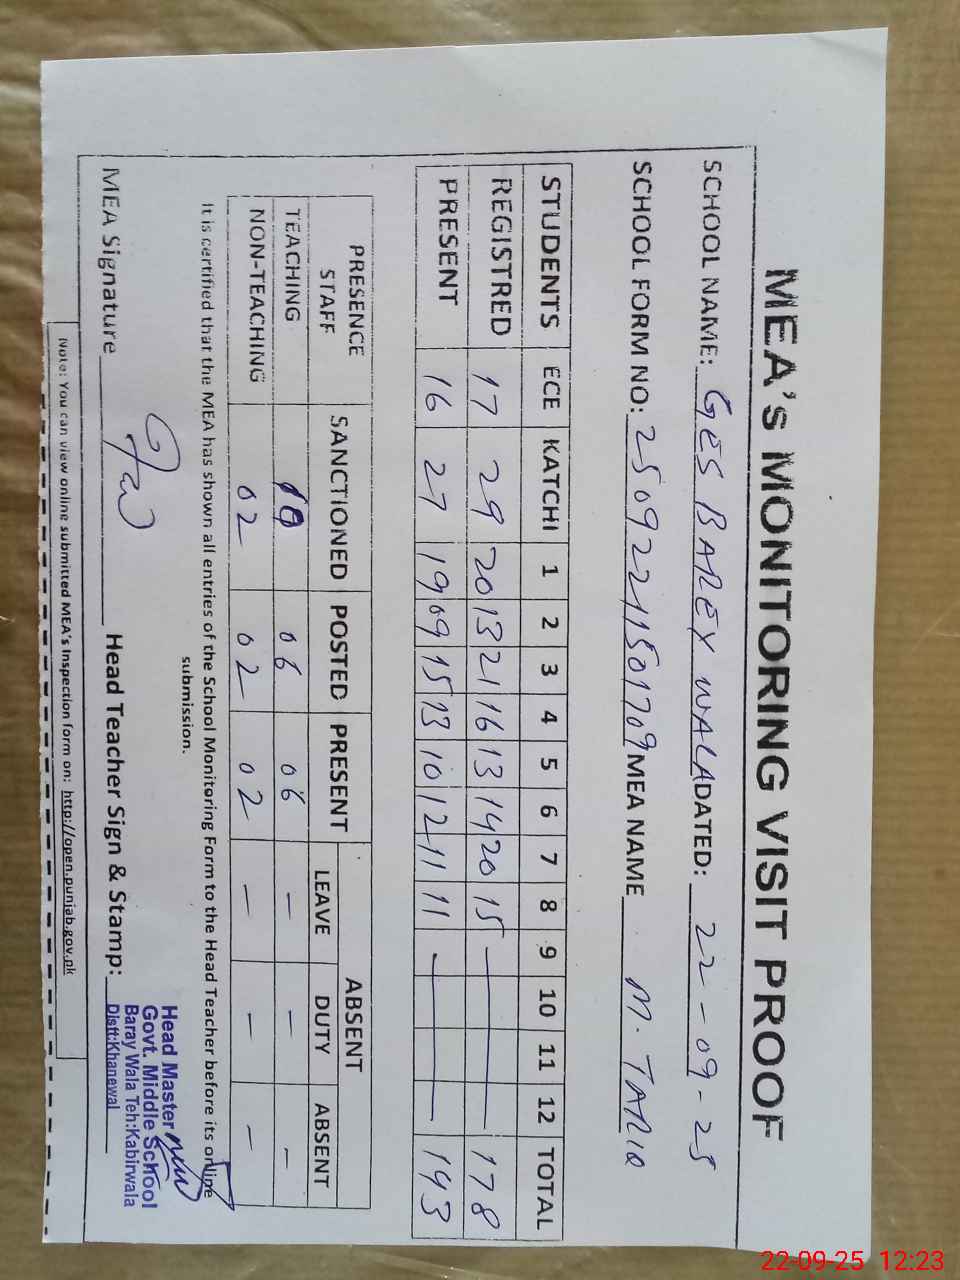 MEA's MONITORING VISIT PROOF
SCHOOL NAME: GES BAREY WALA DATED: 22-09-25
SCHOOL FORM NO: 25092211501709 MEA NAME M. TARIQ
STUDENTS ECE KATCHI 1 2 3 4 5 6 7 8 9 10 11 12 TOTAL
REGISTRED 17 29 20 13 21 16 13 14 20 15 — 178
PRESENT 16 27 19 09 15 13 10 12 11 11 — 143
PRESENCE STAFF SANCTIONED POSTED PRESENT ABSENT
LEAVE DUTY ABSENT
TEACHING 10 06 06 — — —
NON-TEACHING 02 02 02 — — —
It is certified that the MEA has shown all entries of the School Monitoring Form to the Head Teacher before its online
submission.
MEA Signature Head Teacher Sign & Stamp:
Head Master
Govt. Middle School
Baray Wala Teh:Kabirwala
Distt:Khanewal
Note: You can view online submitted MEA's Inspection form on: http://open.punjab.gov.pk
22-09-25 12:23